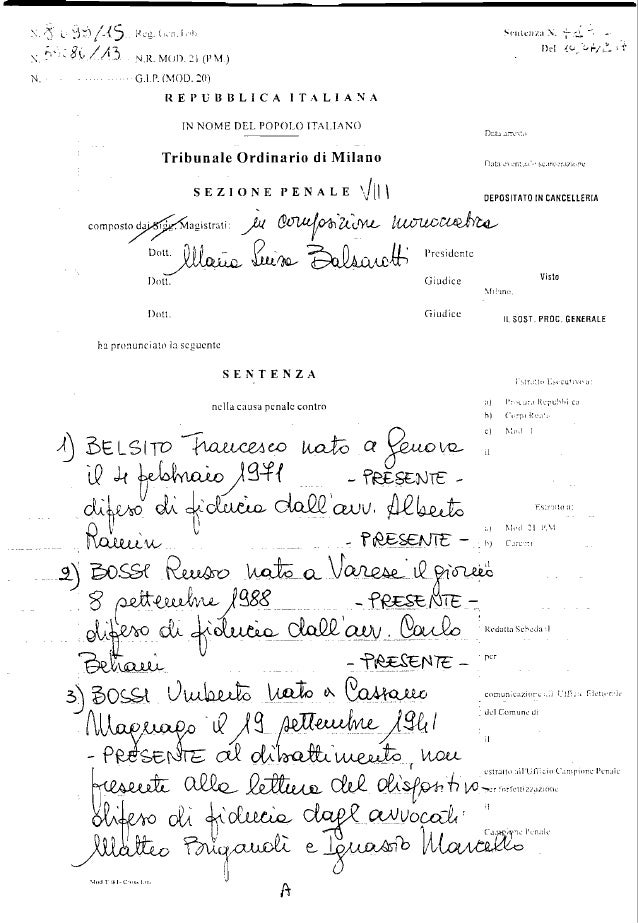 N. /15 Reg. Gen. Trib.
N. /13 N.R. MOD. 21 (P.M.)
N. G.I.P. (MOD. 20)
Sentenza N.
Del
REPUBBLICA ITALIANA
IN NOME DEL POPOLO ITALIANO
Data arresto
Tribunale Ordinario di Milano
Data eventuale scarcerazione
SEZIONE PENALE VIII
DEPOSITATO IN CANCELLERIA
composto dai Sigg. Magistrati: in composizione monocratica
Dott. Maria Luisa Balzarotti Presidente
Dott. Giudice
Visto
Milano,
Dott. Giudice
IL SOST. PROC. GENERALE
ha pronunciato la seguente
SENTENZA
Estratto Esecutivo a:
nella causa penale contro
a) Procura Repubblica
b) Corpi Reato
c) Mod. 1
il
1) BELSITO Francesco nato a Genova
il 4 febbraio 1971 - PRESENTE -
difeso di fiducia dall'avv. Alberto
- PRESENTE -
Estratto a:
a) Mod. 21 P.M.
b) Carceri
2) BOSSI Renzo nato a Varese il giorno
8 settembre 1988 - PRESENTE -
difeso di fiducia dall'avv. Carlo
- PRESENTE -
Redatta Scheda il
per
3) BOSSI Umberto nato a Cassano
Magnago il 19 settembre 1941
- PRESENTE al dibattimento, non
presente alla lettura del dispositivo -
difeso di fiducia dagl avvocati
Matteo Brigandì e Ignazio Marcello
comunicazione all'Ufficio Elettorale
del Comune di
il
estratto all'Ufficio Campione Penale
per forfettizzazione
il
Campione Penale
A